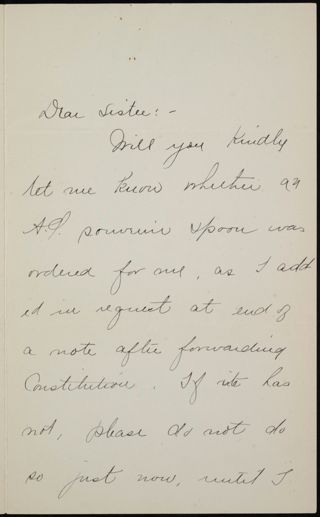 Dear Sister: -
Will you kindly
let me know whether an
A.P. souvenir spoon was
ordered for me, as I add
ed in request at end of
a note after forwarding
Constitution. If it has
not, please do not do
so just now, until I